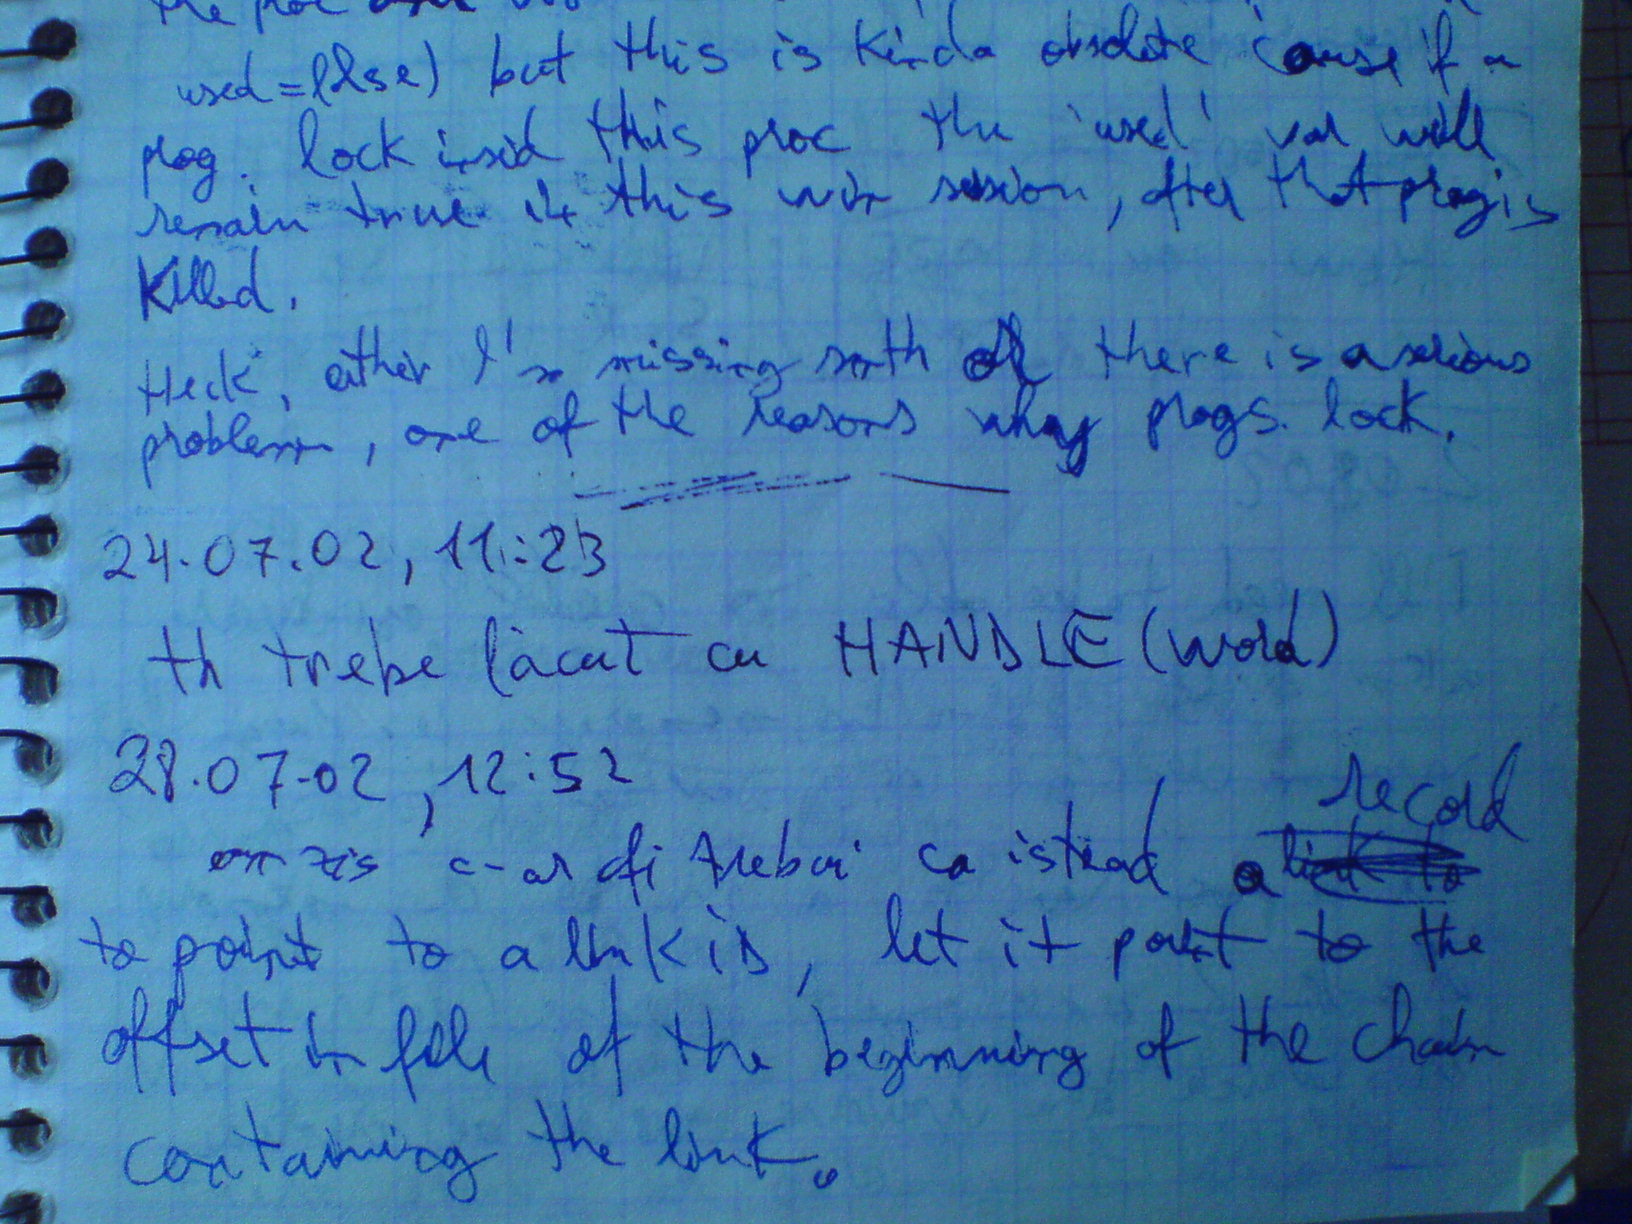 the proc
used=false) but this is kinda obsolete 'cause if a
prog. lock insid this proc the 'used' var will
remain true in this win session, after that prog is
killed.
Heck, either I'm missing smth or there is a serious
problem, one of the reasons why progs. lock.
24.07.02, 11:23
th trebe făcut cu HANDLE(word)
28.07.02, 12:52
am zis c-ar fi trebui ca istead a record
to point to a link iD, let it point to the
offset in file of the beginning of the chain
containing the link.